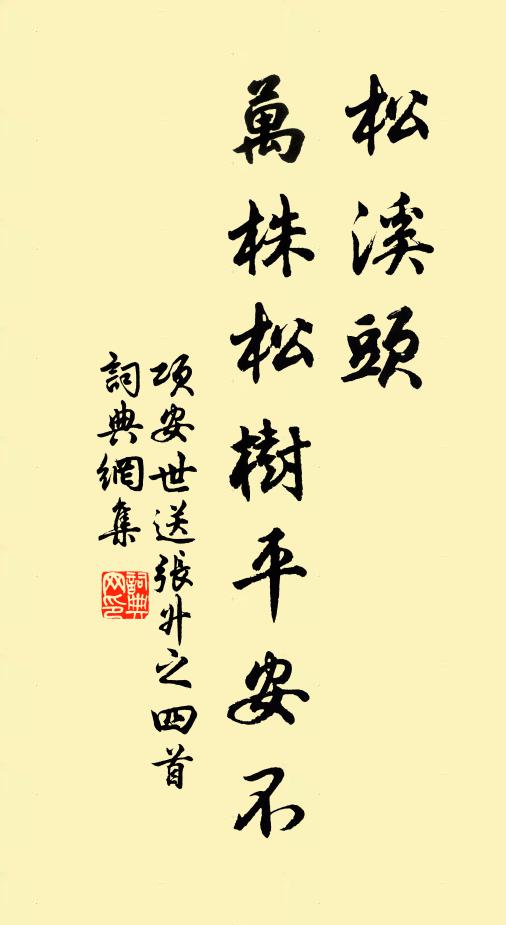 松溪頭
萬株松樹平安不
項安世送張升之四首
詞典網集
詞典网印